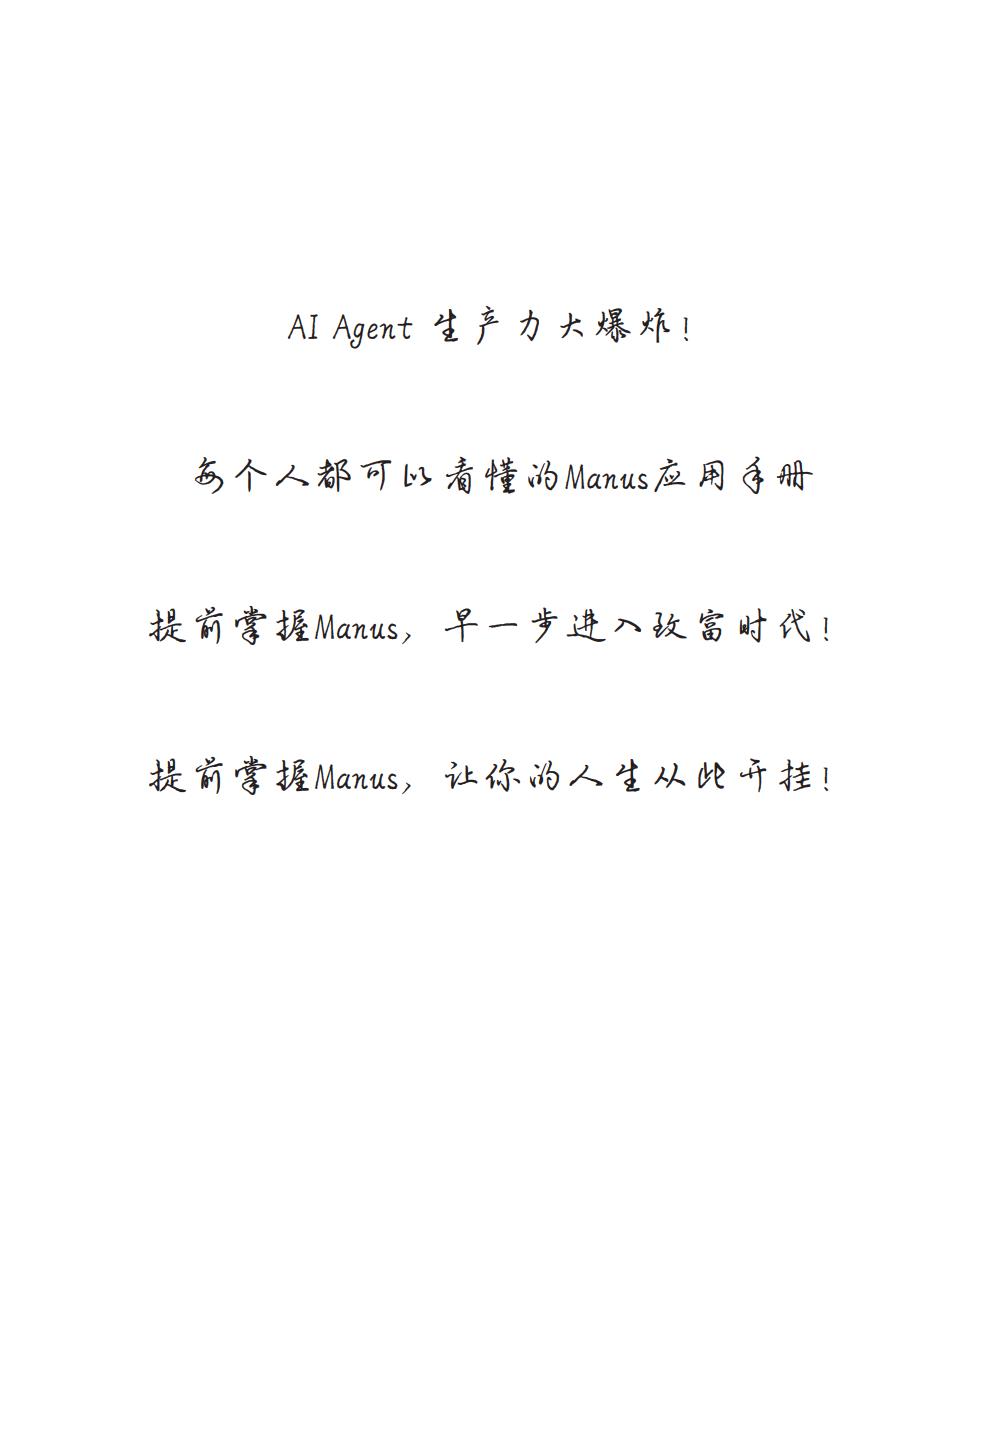 AI Agent 生产力大爆炸！
每个人都可以看懂的Manus应用手册
提前掌握Manus，早一步进入致富时代！
提前掌握Manus，让你的人生从此开挂！